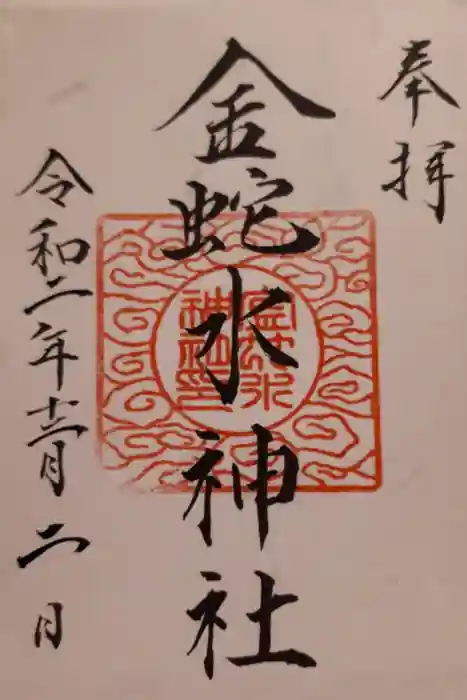 奉拝
金蛇水神社
令和二年十二月二日
金蛇水
神社印